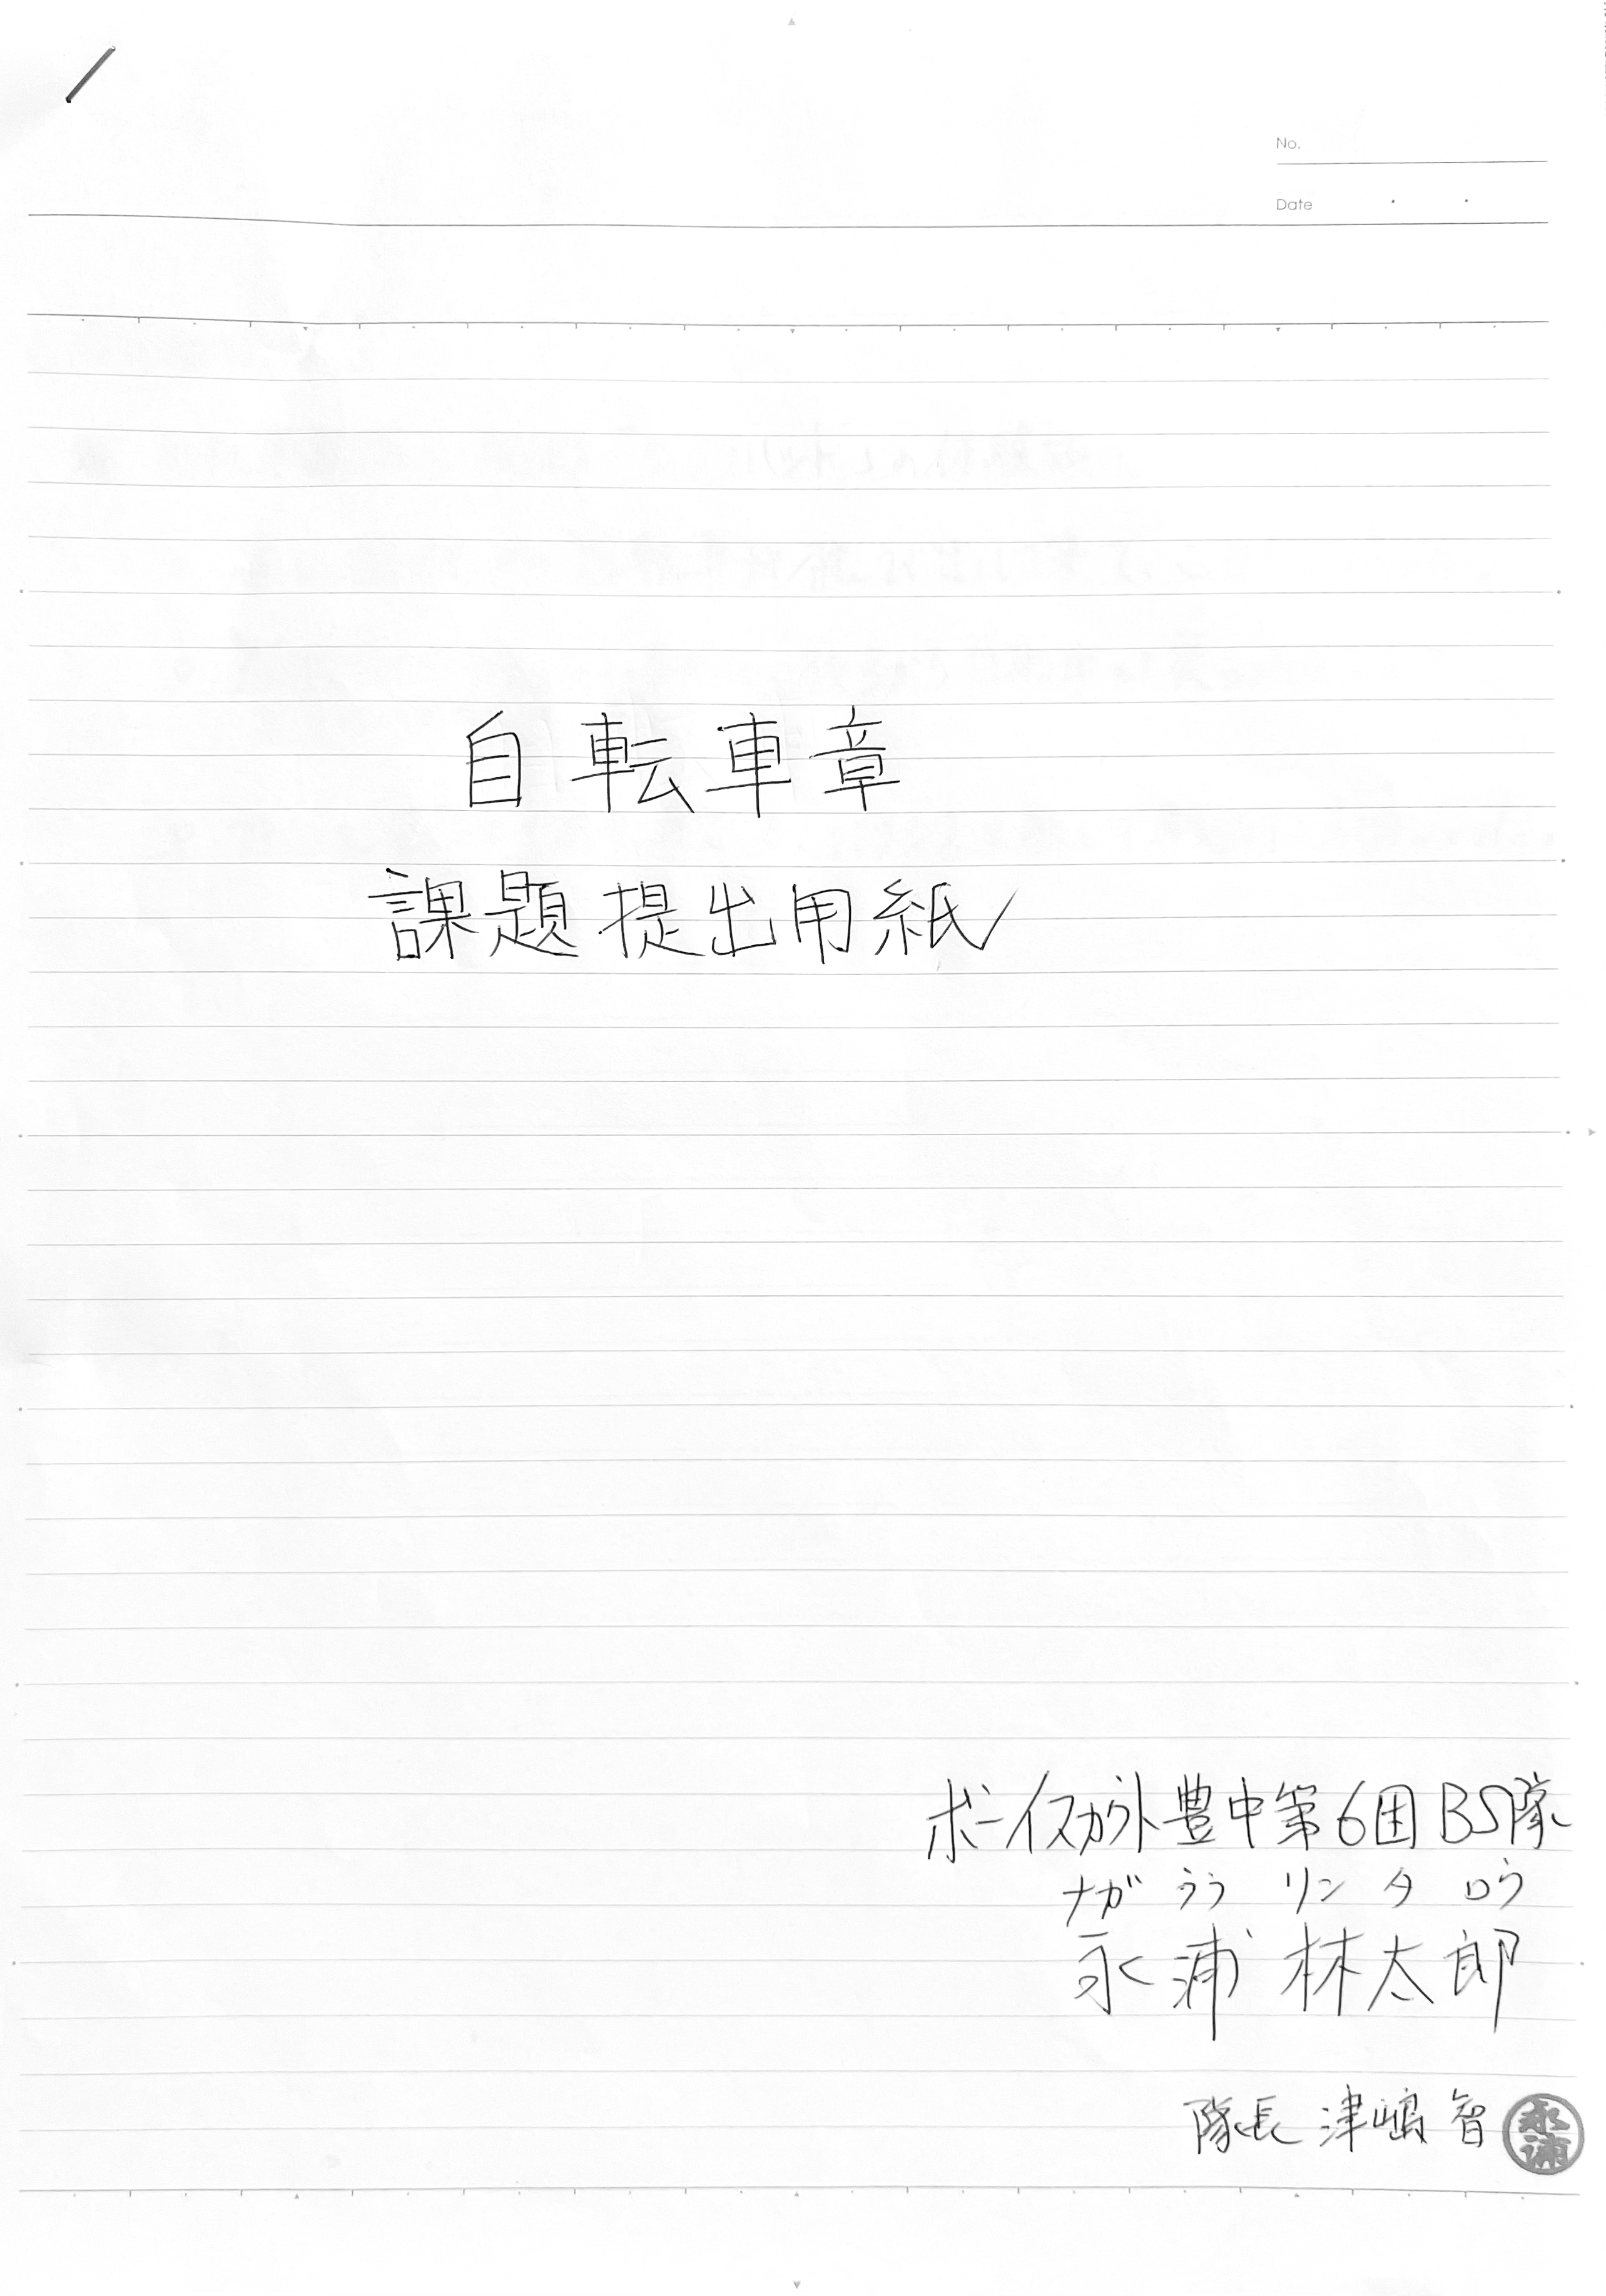 No.
Date
自転車章
課題提出用紙
ボーイスカウト豊中第6団BS隊
ナガウラ リンタロウ
永浦 林太郎
隊長 津嶋 智
永浦